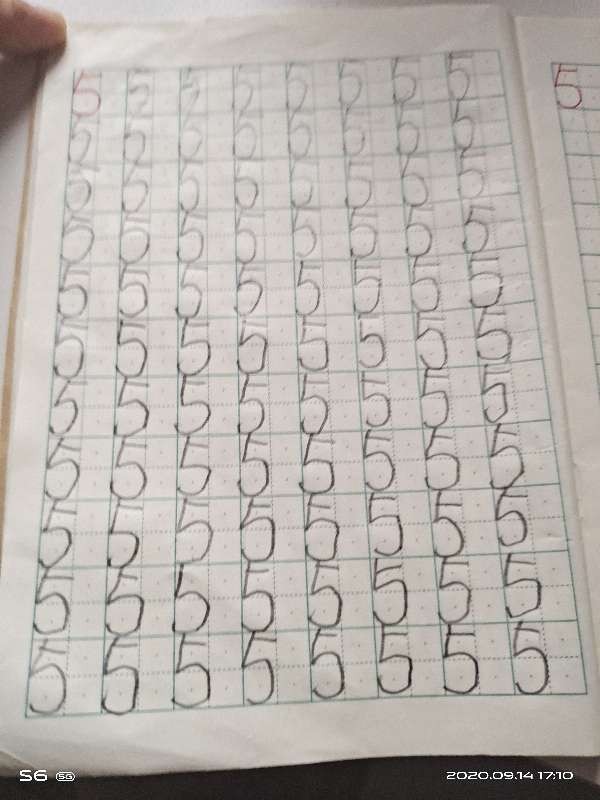 5 5 5 5 5 5 5 5 5
5 5 5 5 5 5 5 5
5 5 5 5 5 5 5 5
5 5 5 5 5 5 5 5
5 5 5 5 5 5 5 5
5 5 5 5 5 5 5 5
5 5 5 5 5 5 5 5
5 5 5 5 5 5 5 5
5 5 5 5 5 5 5 5
5 5 5 5 5 5 5 5
5 5 5 5 5 5 5 5
S6 5G 2020.09.14 17:10